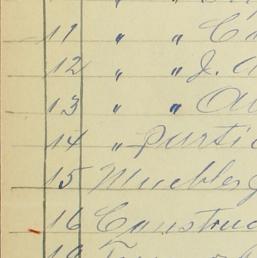 11 " " C
12 " " J. A
13 " " A
14 " partic
15 Muebles y
16 Construc